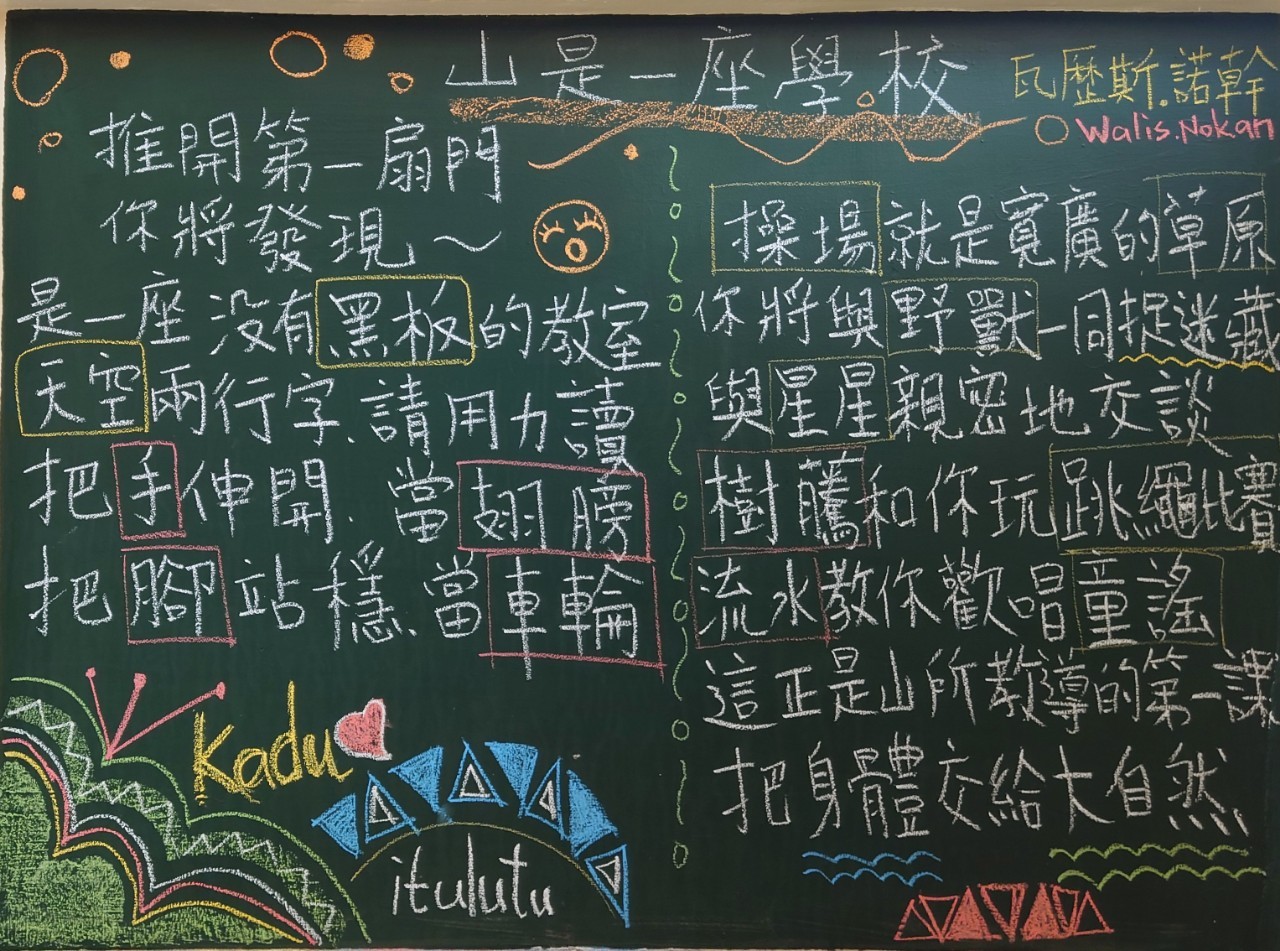 山是一座學校
瓦歷斯.諾幹
Walis.Nokan
推開第一扇門
你將發現～
是一座没有黑板的教室
天空兩行字、請用力讀
把手伸開、當翅膀
把腳站穩、當車輪
操場就是寬廣的草原
你將與野獸一同捉迷藏
與星星親密地交談
樹藤和你玩跳繩比賽
流水教你歡唱童謠
這正是山所教導的第一課
把身體交給大自然、
Kadu
itulutu